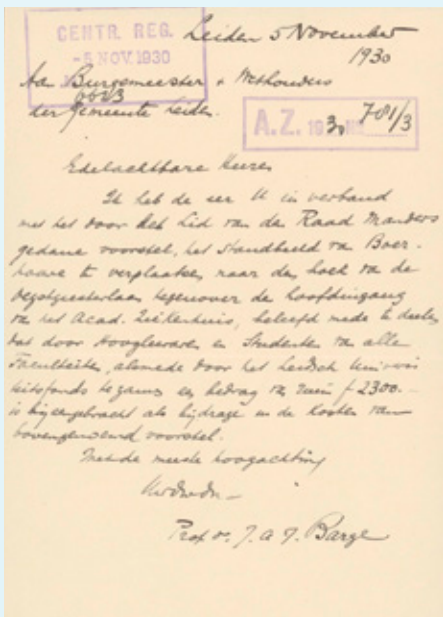 CENTR. REG.
-5 NOV. 1930
Leiden 5 November
1930
Aan Burgemeester + Wethouders
der Gemeente Leiden.
A.Z. 1930 No 781/3
Edelachtbare Heeren
Ik heb de eer U in verband
met het door het Lid van de Raad Manders
gedane voorstel, het standbeeld van Boer-
haave te verplaatsen naar den hoek van de
Oegstgeesterlaan tegenover de hoofdingang
van het Acad. Ziekenhuis, beleefd mede te deelen
dat door Hoogleeraren en Studenten van alle
Faculteiten, alsmede door het Leidsch Univers
iteitsfonds tezamen een bedrag van ruim f 2300.-
is bijeengebracht als bijdrage in de kosten van
bovengenoemd voorstel.
Met de meeste hoogachting
Prof. dr. J. A. J. Barge